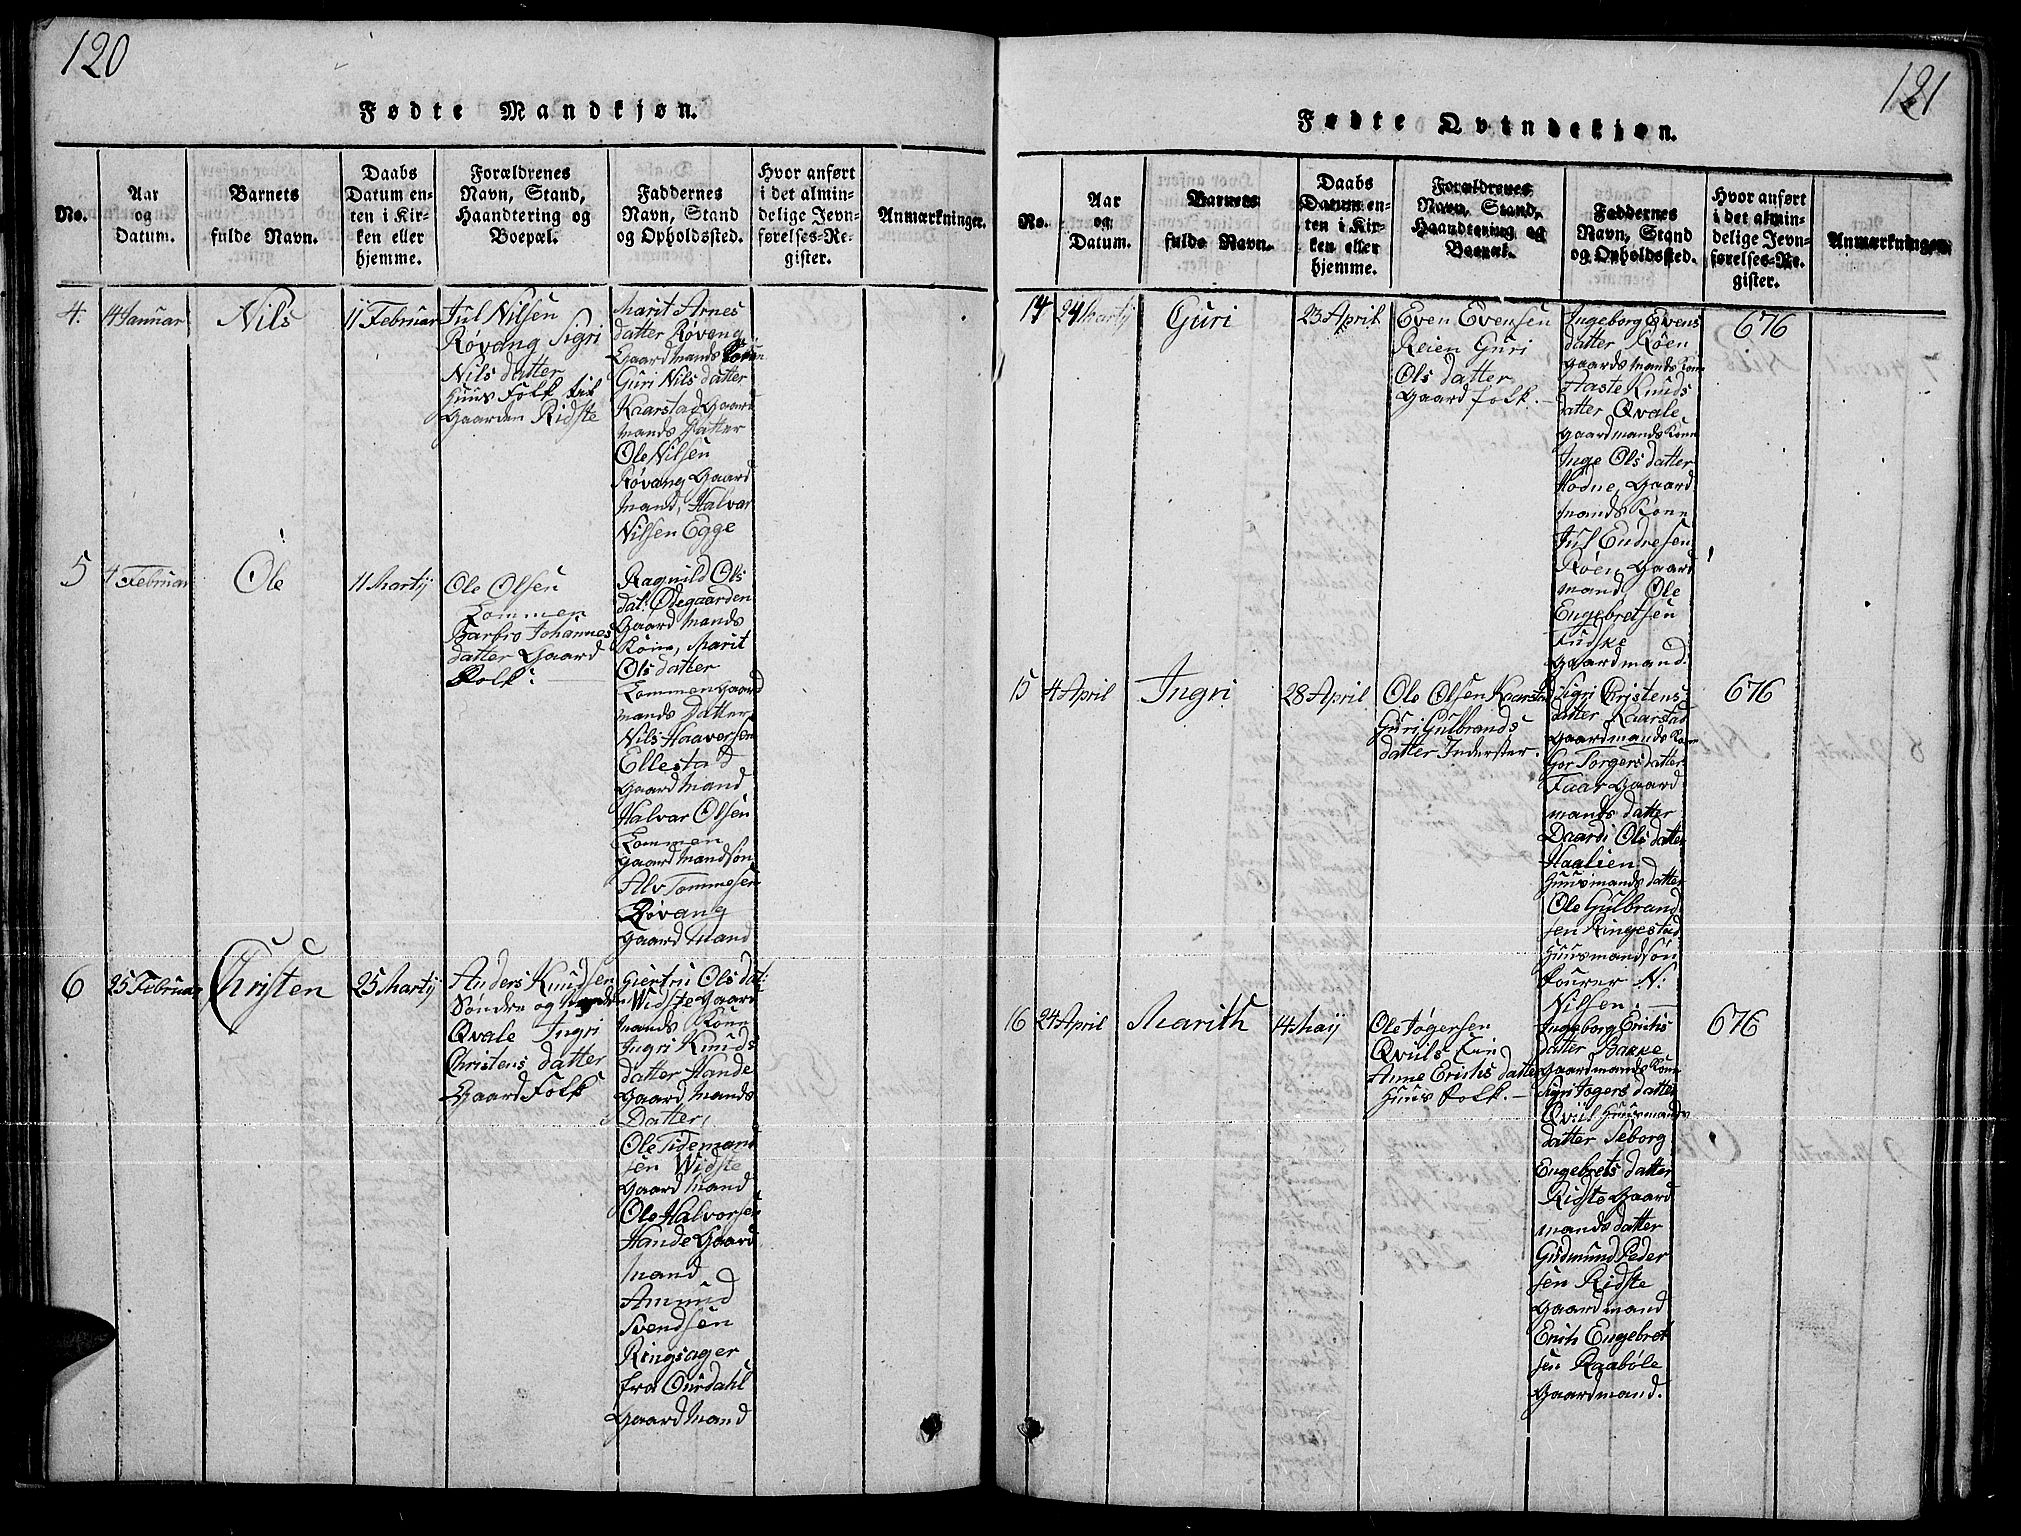 120
Fødte Mandkjøn.
No.
Aar
og
Datum.
Barnets
fulde Navn.
Daabs
Datum en-
ten i Kir-
ken eller
hjemme.
Forældrenes
Navn, Stand,
Haandtering og
Boepæl.
Faddernes
Navn, Stand
og Opholdssted.
Hvor anført
i det almin-
delige Jevn-
førelses-Re-
gister.
Anmærkninger.
4.
14 Januar
Nils
11 Februar
Jul Nilsen
Røvang Sigri
Nils datter
Huus Folk til
Gaarden Ridste
Marit Arnes
datter Røvang
Gaard Mands Kone
Guri Nils datter
Kaarstad Gaard
mands Datter
Ole Nilsen
Røvang Gaard
Mand, Halvar
Nilsen Egge
5
4 Februar
Ole
11 Martij
Ole Olsen
Lommen
Barbro Johannes
datter Gaard
Folk.
Ragnild Ols
dat: Ødegaarden
Gaard Mands
Kone, Marit
Ols datter
Lommen Gaard
mands Datter
Nils Haaversen
Ellestad
Gaard Mand
Halvar Olsen
Lommen
Gaard Mandsøn
Alv Tommesen
Røvang
Gaard Mand
6
25 Februar
Christen
25 Martij
Anders Knudsen
Søndre og
Qvale Ingri
Christens datter
Gaard Folk
Giertru Ols dat:
Widste Gaard
Mands Kone
Ingri Knuds
datter Hande
Gaard Mands
Datter,
Ole Tidemand
sen Widste
Gaard Mand
Ole Halvorsen
Hande Gaard
Mand
Amund
Svendsen
Ringsager
fra Ourdahl
Gaard Mand
121
Fødte Qvindekjøn.
No.
Aar
og
Datum.
Barnets
fulde Navn.
Daabs
Datum en-
ten i Kir-
ken eller
hjemme.
Forældrenes
Navn, Stand,
Haandtering og
Boepæl.
Faddernes
Navn, Stand
og Opholdssted.
Hvor anført
i det almin-
delige Jevn-
førelses-Re-
gister.
Anmærkninger.
14
24 Martij
Guri
23 April
Even Evensen
Reien Guri
Ols datter
Gaard folk.
Ingeborg Evens
datter Røen
Gaards mands Kone
Haste Knuds
datter Qvale
Gaardmands Kone
Inge Ols datter
Hodne, Gaard
mands Kone
Jul Endresen
Røen, Gaard
mand Ole
Engebretsen
Fudske
Gaardmand.
676
15
4 April
Ingri
28 April
Ole Olsen Kaarstad
Guri Gulbrands
datter Inderster.
Sigri Christens
datter Kaarstad
Gaardmands Kone
Gor Torgers datter
Faar Gaard
mands datter
Daardi Ols datter
Haalien
Huusmands datter
Ole Gulbrand
sen Ringestad
Huusmandsøn
Fourer N:
Nilsen.
676
16
24 April
Marith
14 Maij
Ole Jøgersen
Qvüls Eie
Anne Erichs datter
Huus Folk.
Ingeborg Erichs
datter Bakke
Gaardmands Kone
Sigri Jøgers datter
Qviil Huusmands
datter Seborg
Engebrets datter
Ridste Gaard
mands datter
Gudmund Peder
sen Ridste
Gaard mand
Erich Engebret
sen Raabøle
Gaardmand.
676